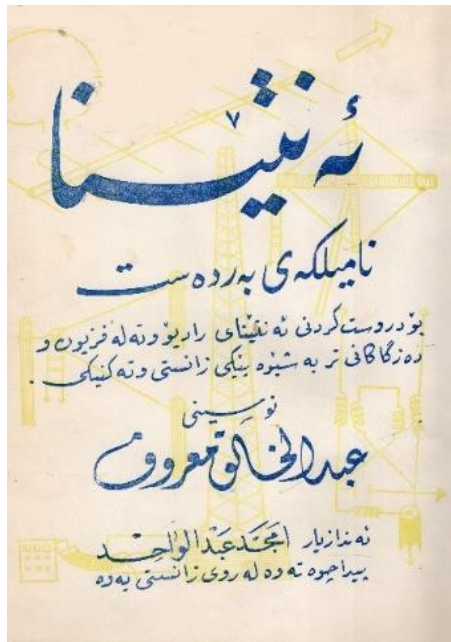 ئەنتێنا
نامیلکەی بەردەست
بۆ دروست کردنی ئەنتێنای رادیۆ و تەلەفزیون و
دەزگاکانی تر بە شێوە یێکی زانستی و تەکنیکی .
نوسینی
عبدالخالق معروف
ئەندازیار امجد عبدالواحد
پیداچوە تەوە لەروی زانستی یەوە